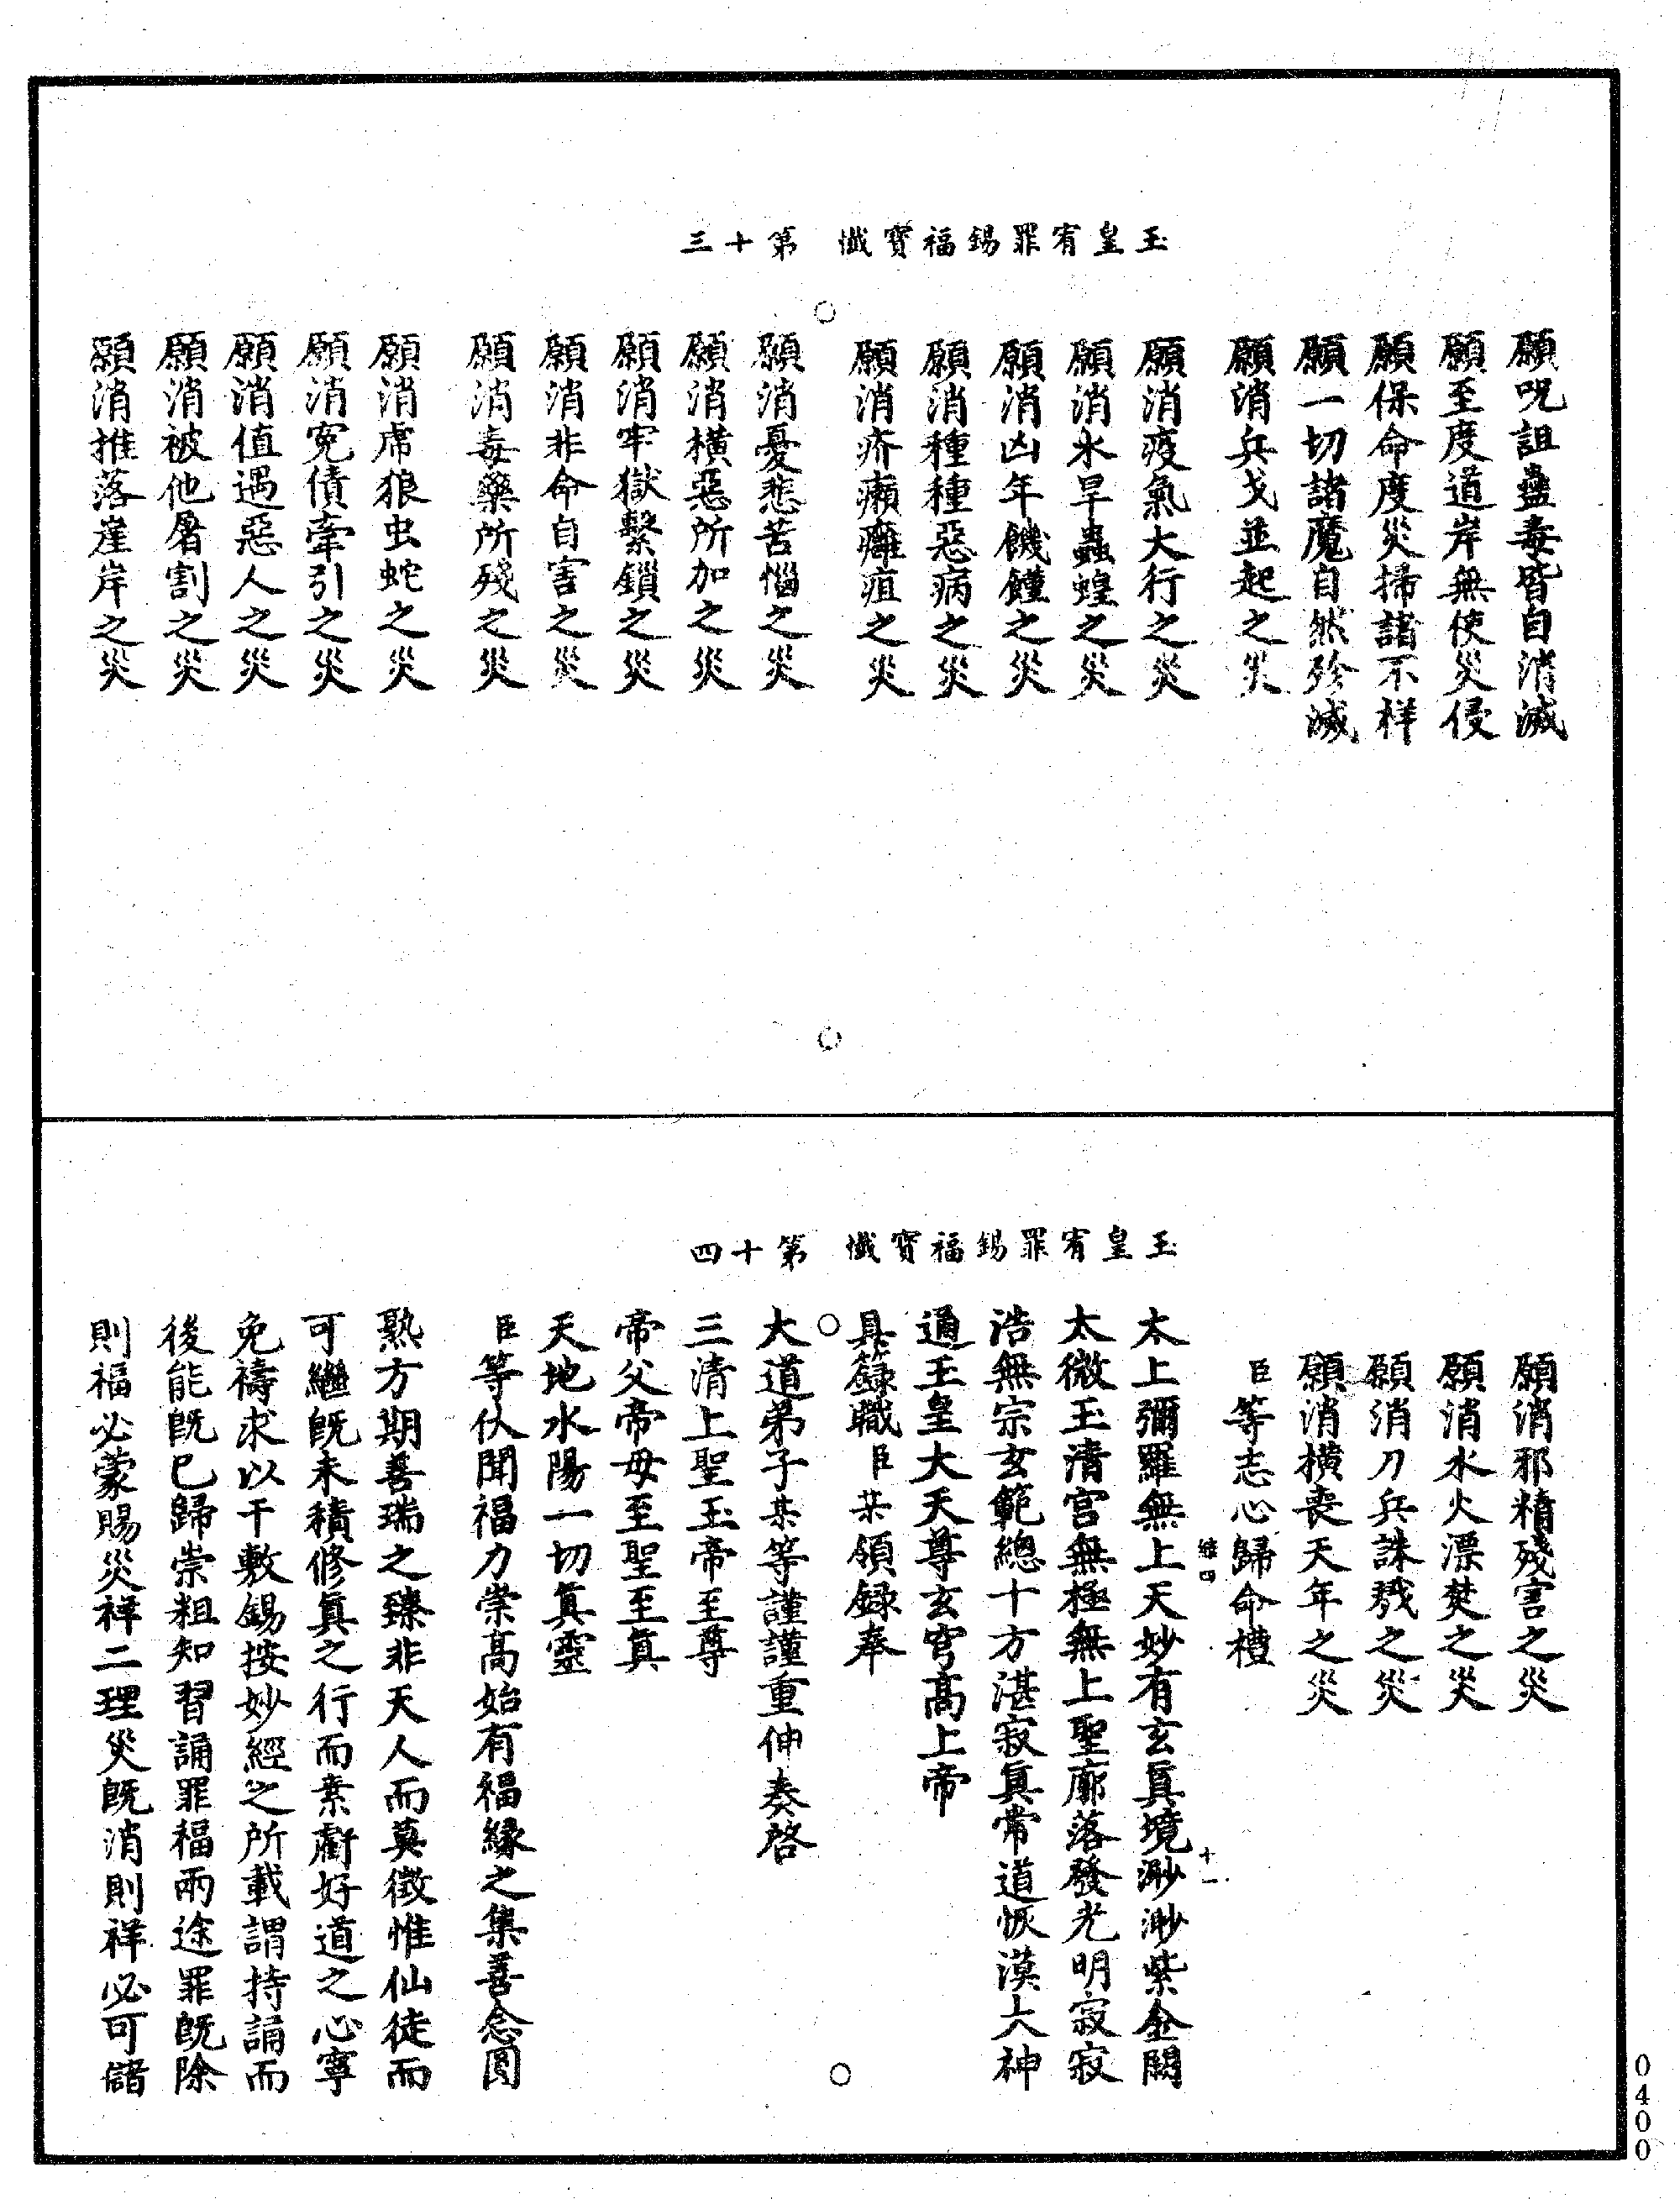 玉皇宥罪錫福寶懺　第十三
願呪詛蠱毒皆自消滅
願至度道岸無使災侵
願保命度災掃諸不祥
願一切諸魔自然殄滅
願消兵戈並起之災
願消疫氣大行之災
願消水旱蟲蝗之災
願消凶年饑饉之災
願消種種惡病之災
願消疥癩癰疽之災
願消憂悲苦惱之災
願消橫惡所加之災
願消牢獄繫鎖之災
願消非命自害之災
願消毒藥所殘之災
願消虎狼虫蛇之災
願消冤債牽引之災
願消值遇惡人之災
願消被他屠割之災
願消推落崖岸之災
玉皇宥罪錫福寶懺　第十四
願消邪精殘害之災
願消水火漂焚之災
願消刀兵誅戮之災
願消橫喪天年之災
臣等志心歸命禮
緣四　十一
太上彌羅無上天妙有玄真境渺渺紫金闕
太微玉清宮無極無上聖廓落發光明寂寂
浩無宗玄範總十方湛寂真常道恢漠大神
通玉皇大天尊玄穹高上帝
具籙職臣某領錄奉
大道弟子某等謹謹重伸奏啓
三清上聖玉帝至尊
帝父帝母至聖至真
天地水陽一切真靈
臣等伏聞福力崇高始有福緣之集善念圓
熟方期善瑞之臻非天人而莫徵惟仙徒而
可繼既未積修真之行而素虧好道之心寧
免禱求以干敷錫按妙經之所載謂持誦而
後能既已歸崇粗知習誦罪福兩途罪既除
則福必蒙賜災祥二理災既消則祥必可儲
0400